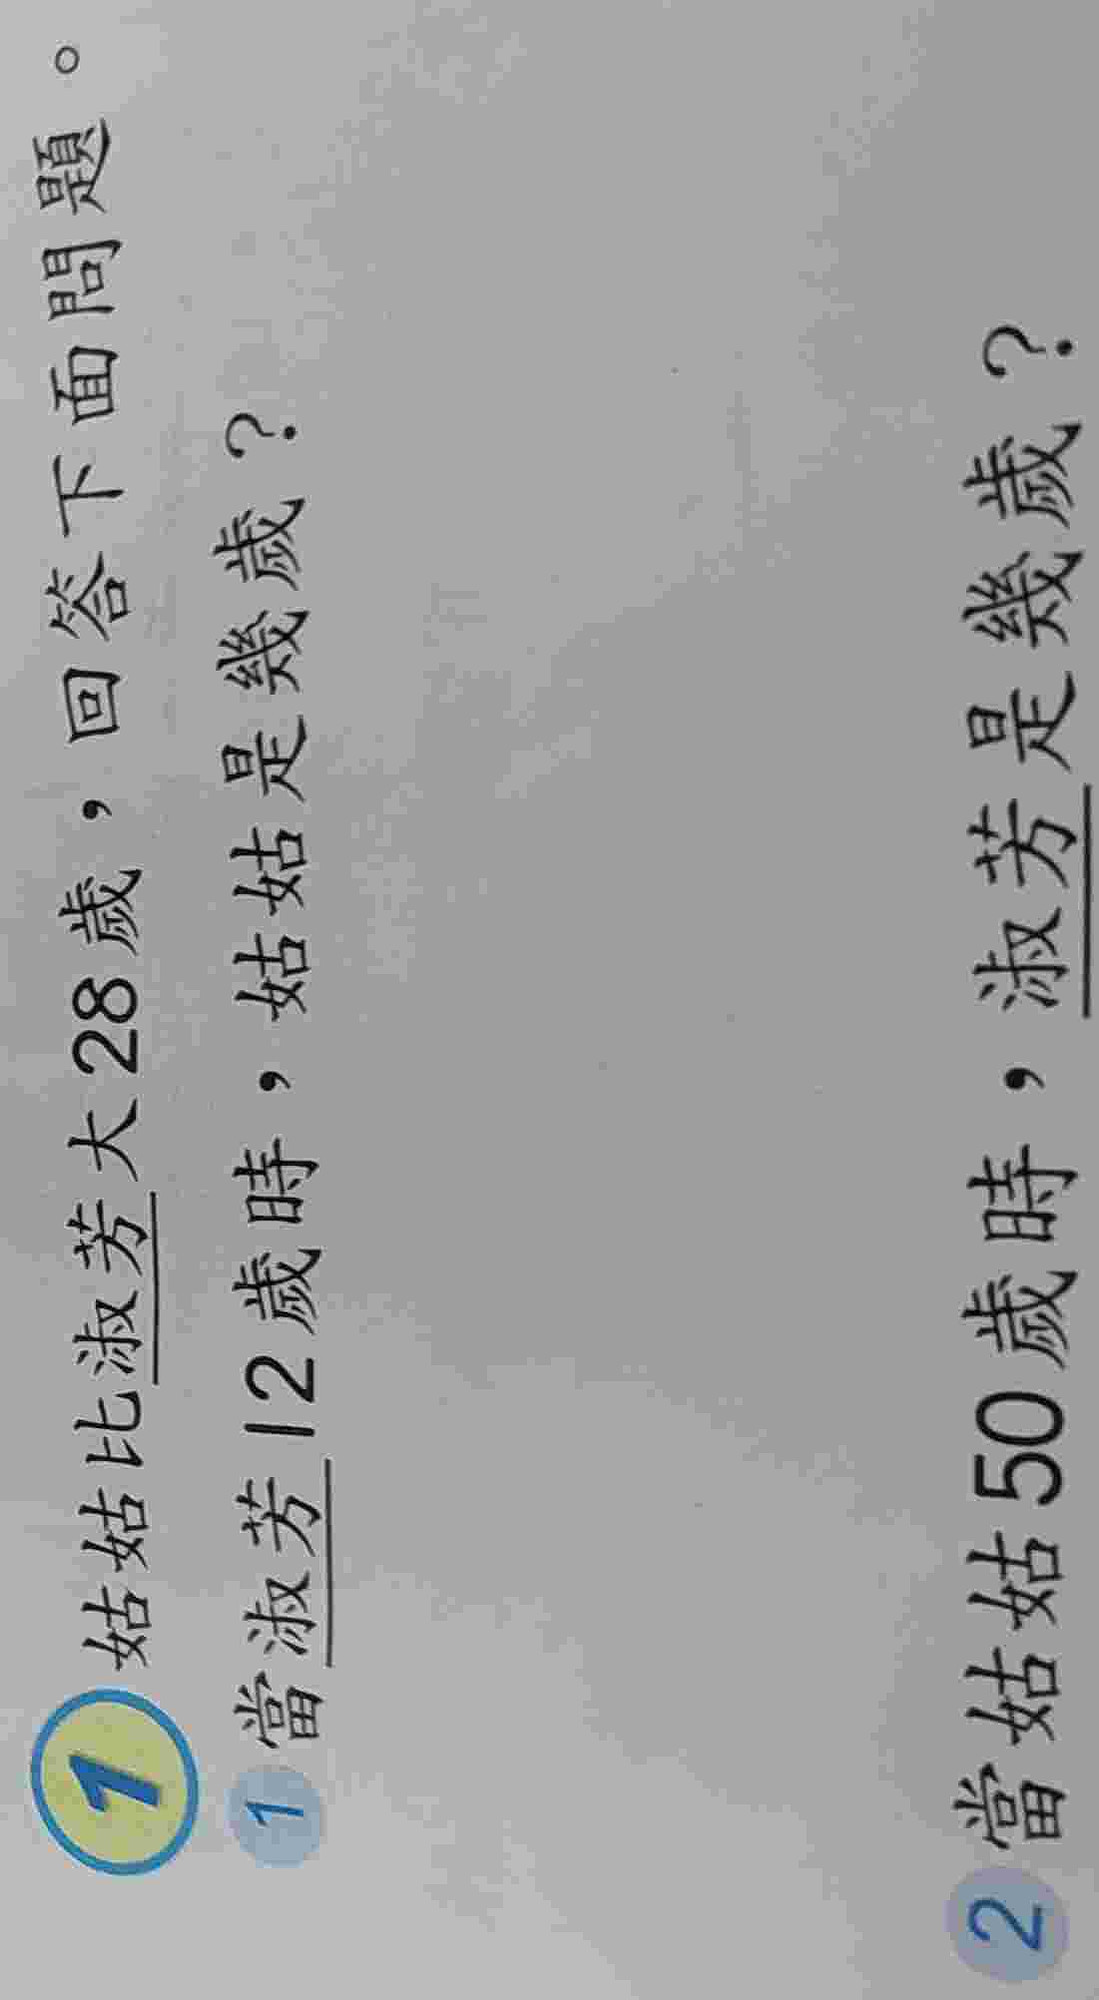 1 姑姑比淑芳大28歲，回答下面問題。
1 當淑芳12歲時，姑姑是幾歲？
2 當姑姑50歲時，淑芳是幾歲？